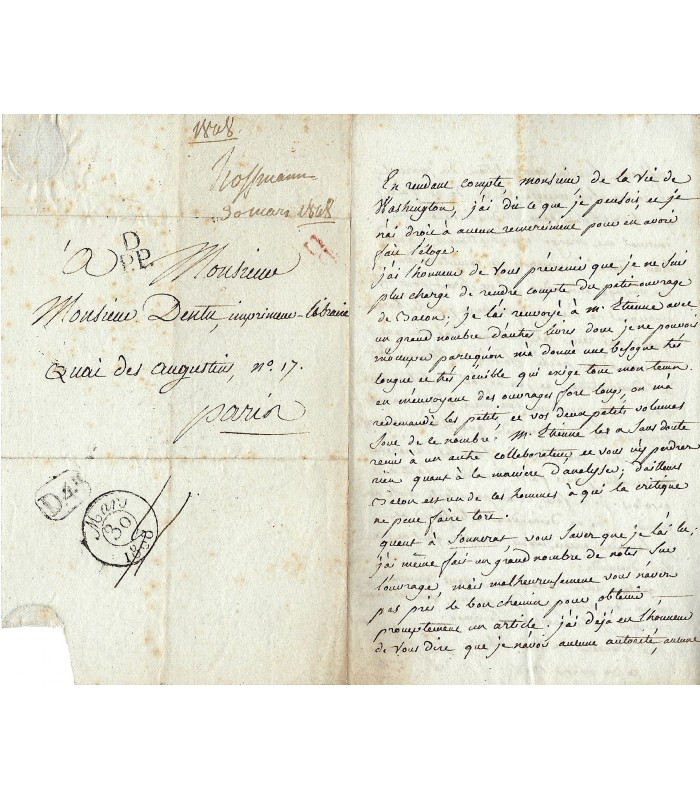 1808.
Hoffmann
30 mars 1808
D
P.P.
À Monsieur
Monsieur Dentu, imprimeur-libraire
Quai des augustins, no. 17.
paris
D.4.
Mars
30
1808
En rendant compte, monsieur de la vie de
Washington, j'ai dit ce que je pensois, et je
n'ai droit à aucun remerciment pour en avoir
fait l'éloge.
j'ai l'honneur de vous prévenir que je ne suis
plus chargé de rendre compte du petit ouvrage
de Bacon; je l'ai renvoyé à m. Etienne avec
un grand nombre d'autres livres dont je ne pouvois
m'occuper parcequ'on m'a donné une besogne très
longue et très pénible qui exige tout mon tems.
en m'envoyant des ouvrages fort longs, on m'a
redemandé les petits et vos deux petits volumes
sont de ce nombre. m. Etienne les a sans doute
remis à un autre collaborateur et vous n'y perdrez
rien quant à la manière d'analyse; d'ailleurs
Bacon est un de ces hommes à qui la critique
ne peut faire tort.
quant à Sonnerat vous savez que je l'ai lu;
j'ai même fait un grand nombre de notes sur
l'ouvrage, mais malheureusement vous n'avez
pas pris le bon chemin pour obtenir
promptement un article. j'ai déjà eu l'honneur
de vous dire que je n'avois aucune autorité, aucune